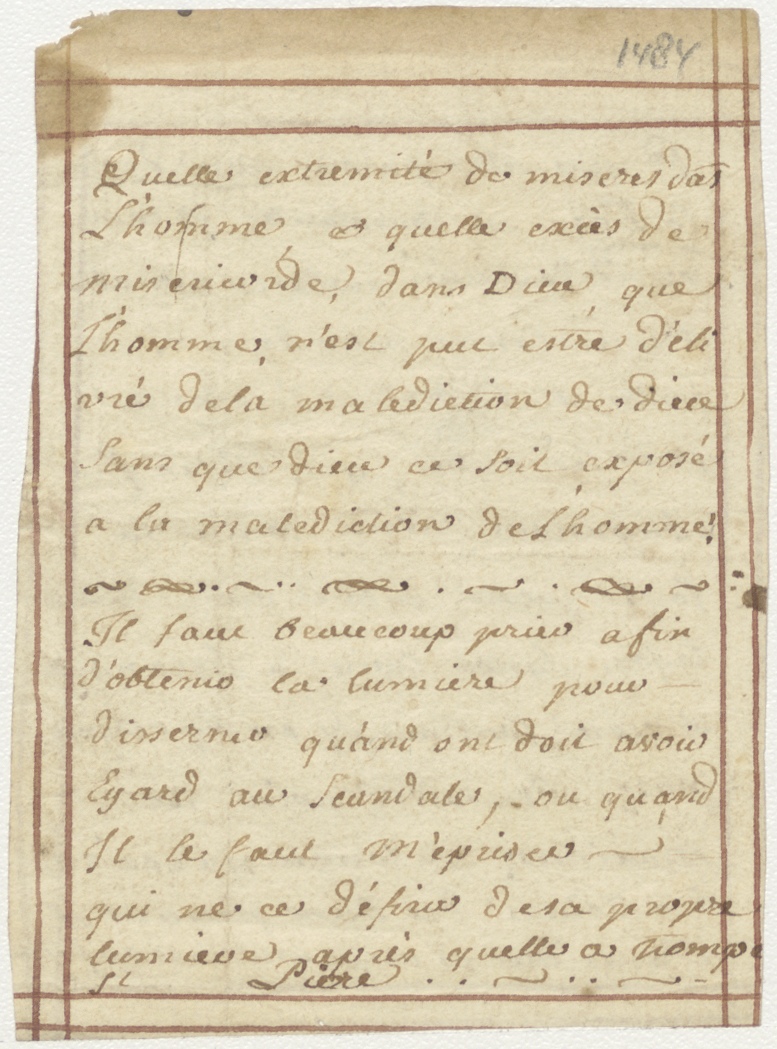 1484
Quelle extremité de miseres das
L'homme, & quelle exiès de
misericorde, dans Dieu, que
l'homme, n'est put estre d'éli
vré dela malediction de dieu
sans que dieu ce soit exposé
a la malediction de L'homme!
Il faut beaucoup prier afin
d'obtenir la lumiere pour
disserner quánd ont doit avoir
Egard au scandale, ou quand
Il le faut m'épriser
qui ne ce défira desa propre
lumiere aprés quelle a trompé
st Piere